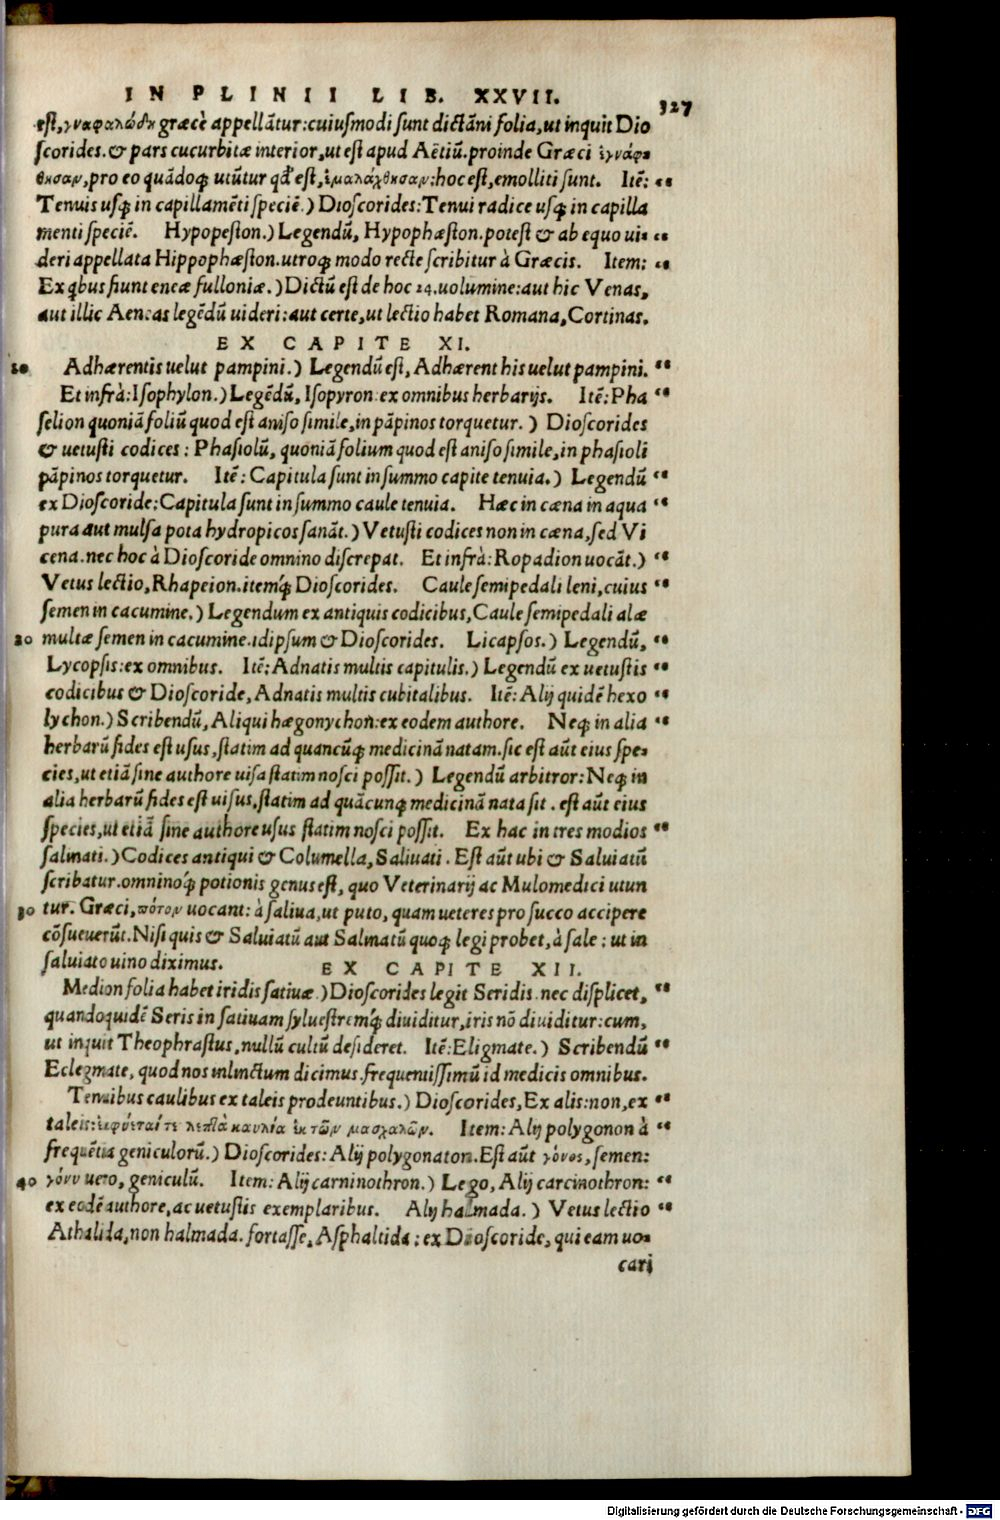 IN PLINII LIB. XXVII. 327
est, γναφαλώδη græcè appellãtur: cuiusmodi sunt dictãni folia, ut inquit Dio
scorides. & pars cucurbitæ interior, ut est apud Aëtiũ. proinde Græci ἐγνάφ-
θησαν, pro eo quãdoq; utũtur qđ est, ἐμαλάχθησαν: hoc est, emolliti sunt. Itẽ: "
Tenuis usq; in capillamẽti speciẽ.) Dioscorides: Tenui radice usq; in capilla
menti speciẽ. Hypopeston.) Legendũ, Hypophæston. potest & ab equo ui- "
deri appellata Hippophæston. utroq; modo recte scribitur à Græcis. Item: "
Ex qbus fiunt eneæ fulloniæ.) Dictũ est de hoc 24. uolumine: aut hic Venas,
aut illic Aeneas legẽdũ uideri: aut certe, ut lectio habet Romana, Cortinas.
EX CAPITE XI.
10 Adhærentis uelut pampini.) Legendũ est, Adhærent his uelut pampini. "
Et infrà: Isophylon.) Legẽdũ, Isopyron: ex omnibus herbarijs. Itẽ: Pha "
selion quoniã foliũ quod est aniso simile, in pãpinos torquetur.) Dioscorides
& uetusti codices: Phasiolũ, quoniã folium quod est aniso simile, in phasioli
pãpinos torquetur. Itẽ: Capitula sunt in summo capite tenuia.) Legendũ "
ex Dioscoride: Capitula sunt in summo caule tenuia. Hæc in cæna in aqua "
pura aut mulsa pota hydropicos sanãt.) Vetusti codices non in cæna, sed Vi
cena. nec hoc à Dioscoride omnino discrepat. Et infrà: Ropadion uocãt.) "
Vetus lectio, Rhapeion. itemq́; Dioscorides. Caule semipedali leni, cuius "
semen in cacumine.) Legendum ex antiquis codicibus, Caule semipedali alæ
20 multæ semen in cacumine. idipsum & Dioscorides. Licapsos.) Legendũ, "
Lycopsis: ex omnibus. Itẽ: Adnatis multis capitulis.) Legendũ ex uetustis "
codicibus & Dioscoride, Adnatis multis cubitalibus. Itẽ: Alij quidẽ hexo "
lychon.) Scribendũ, Aliqui hægonychon: ex eodem authore. Neq; in alia "
herbarũ fides est usus, statim ad quancũq; medicinã natam. sic est aũt eius spe-
cies, ut etiã sine authore uisa statim nosci possit.) Legendũ arbitror: Neq; in
alia herbarũ fides est uisus, statim ad quãcunq; medicinã nata sit. est aũt eius
species, ut etiã sine authore usus statim nosci possit. Ex hac in tres modios "
salmati.) Codices antiqui & Columella, Saliuati. Est aũt ubi & Saluiatũ
scribatur. omninoq́; potionis genus est, quo Veterinarij ac Mulomedici utun
30 tur. Græci, πότον uocant: à saliua, ut puto, quam ueteres pro succo accipere
cõsueuerũt. Nisi quis & Saluiatũ aut Salmatũ quoq; legi probet, à sale: ut in
saluiato uino diximus. EX CAPITE XII.
Medion folia habet iridis satiuæ.) Dioscorides legit Seridis. nec displicet, "
quandoquidẽ Seris in satiuam syluestremq́; diuiditur, iris nõ diuiditur: cum,
ut inquit Theophrastus, nullũ cultũ desideret. Itẽ: Eligmate.) Scribendũ "
Eclegmate, quod nos inlinctum dicimus. frequentissimũ id medicis omnibus.
Tenuibus caulibus ex taleis prodeuntibus.) Dioscorides, Ex alis: non, ex "
taleis: ἐκφύεταί τε λεπτὰ καυλία ἐκ τῶν μασχαλῶν. Item: Alij polygonon à "
frequẽtia geniculorũ.) Dioscorides: Alij polygonaton. Est aũt γόνος, semen:
40 γόνυ uero, geniculũ. Item: Alij carninothron.) Lego, Alij carcinothron: "
ex eodẽ authore, ac uetustis exemplaribus. Alij halmada.) Vetus lectio "
Athalida, non halmada. fortasse, Asphaltida: ex Dioscoride, qui eam uo-
cari
Digitalisierung gefördert durch die Deutsche Forschungsgemeinschaft - DFG